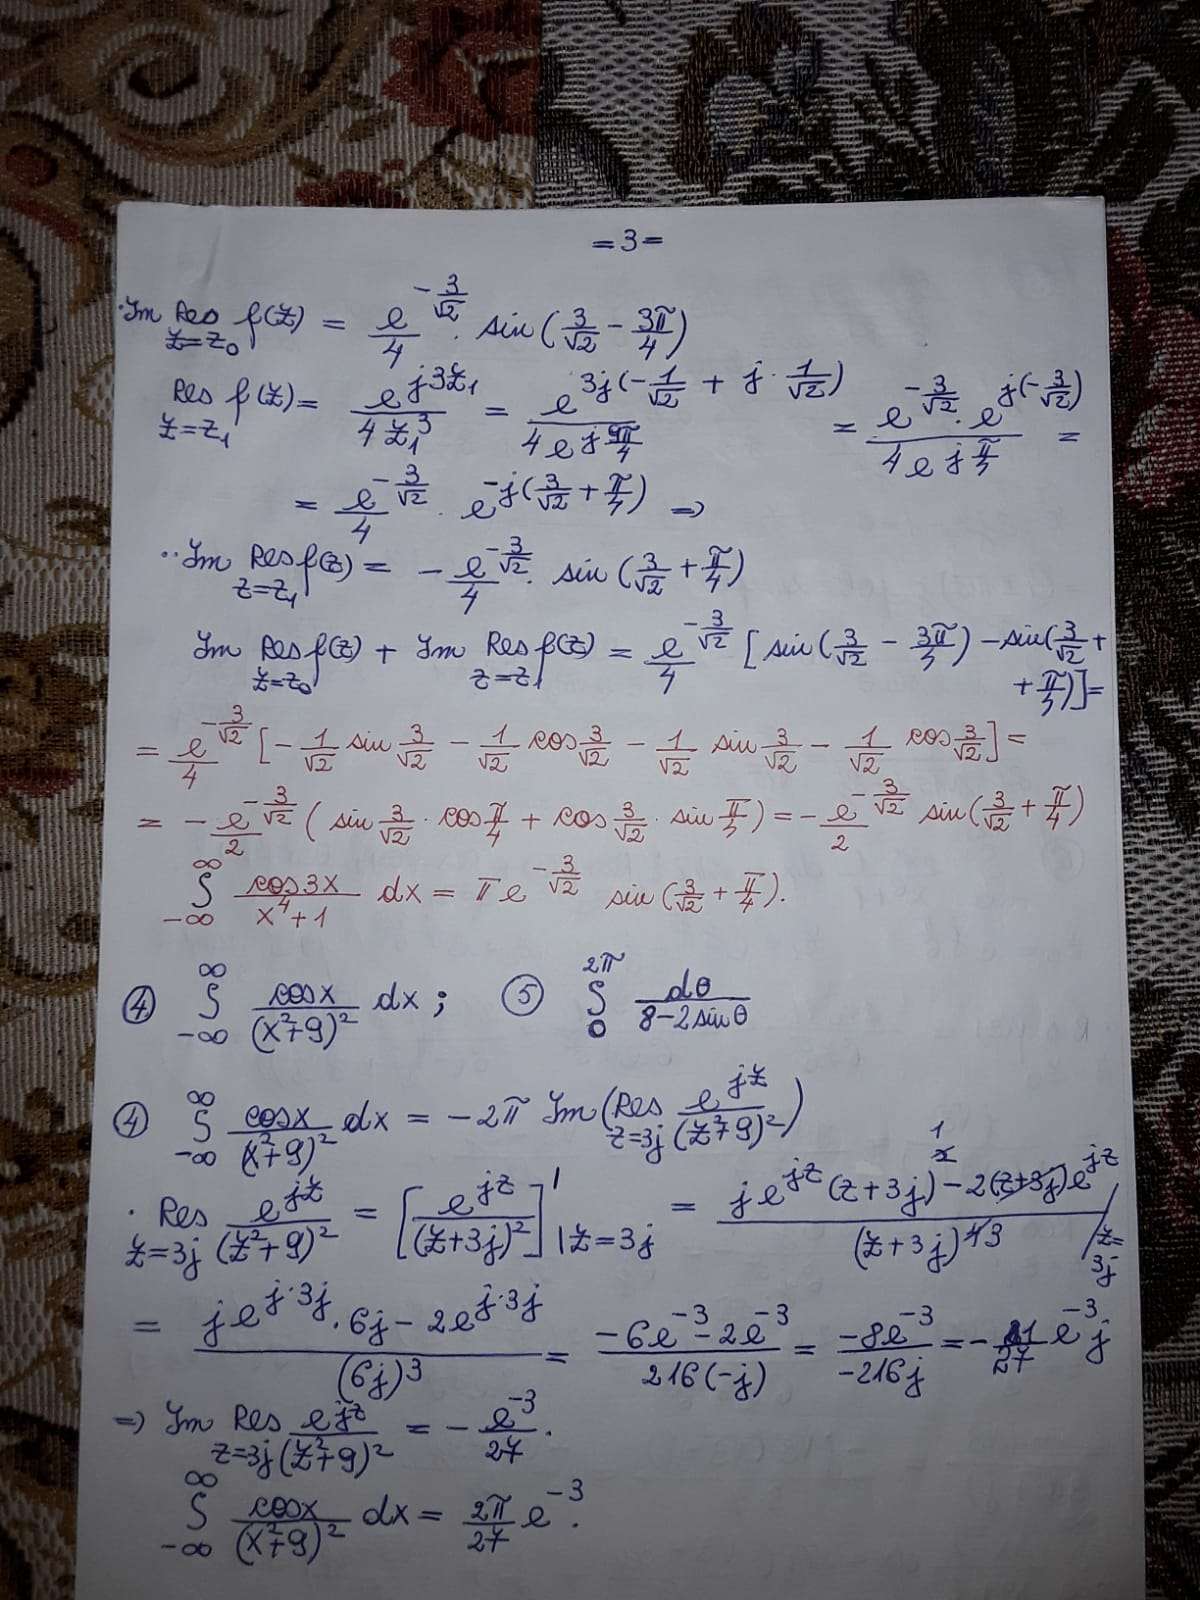 =3=
· Im Res_{z=z₀} f(z) = e^{-3/√2}/4 · sin(3/√2 − 3π/4)
Res_{z=z₁} f(z) = e^{j3z₁}/(4z₁³) = e^{3j(−1/√2 + j·1/√2)}/(4e^{j9π/4}) = e^{−3/√2} · e^{j(−3/√2)}/(4e^{jπ/4}) =
= e^{−3/√2}/4 · e^{−j(3/√2 + π/4)} ⇒
·· Im Res_{z=z₁} f(z) = − e^{−3/√2}/4 · sin(3/√2 + π/4)
Im Res_{z=z₀} f(z) + Im Res_{z=z₁} f(z) = e^{−3/√2}/4 [sin(3/√2 − 3π/4) − sin(3/√2 +
+ π/4)] =
= e^{−3/√2}/4 [−1/√2 sin 3/√2 − 1/√2 cos 3/√2 − 1/√2 sin 3/√2 − 1/√2 cos 3/√2] =
= − e^{−3/√2}/2 (sin 3/√2 · cos π/4 + cos 3/√2 · sin π/4) = − e^{−3/√2}/2 sin(3/√2 + π/4)
∫_{−∞}^{∞} cos3x/(x⁴+1) dx = π e^{−3/√2} sin(3/√2 + π/4).
④ ∫_{−∞}^{∞} cosx/(x²+9)² dx; ⑤ ∫_{0}^{2π} dθ/(8−2sinθ)
④ ∫_{−∞}^{∞} cosx/(x²+9)² dx = −2π Im(Res_{z=3j} e^{jz}/(z²+9)²)
· Res_{z=3j} e^{jz}/(z²+9)² = [e^{jz}/(z+3j)²]' |z=3j = (je^{jz}(z+3j)^{1} − 2(z+3j)e^{jz})/(z+3j)^{43} /z=3j
= (je^{j·3j}·6j − 2e^{j·3j})/(6j)³ = (−6e^{−3} − 2e^{−3})/(216(−j)) = −8e^{−3}/(−216j) = −1/27 e^{−3}j
⇒ Im Res_{z=3j} e^{jz}/(z²+9)² = − e^{−3}/27.
∫_{−∞}^{∞} cosx/(x²+9)² dx = 2π/27 e^{−3}.